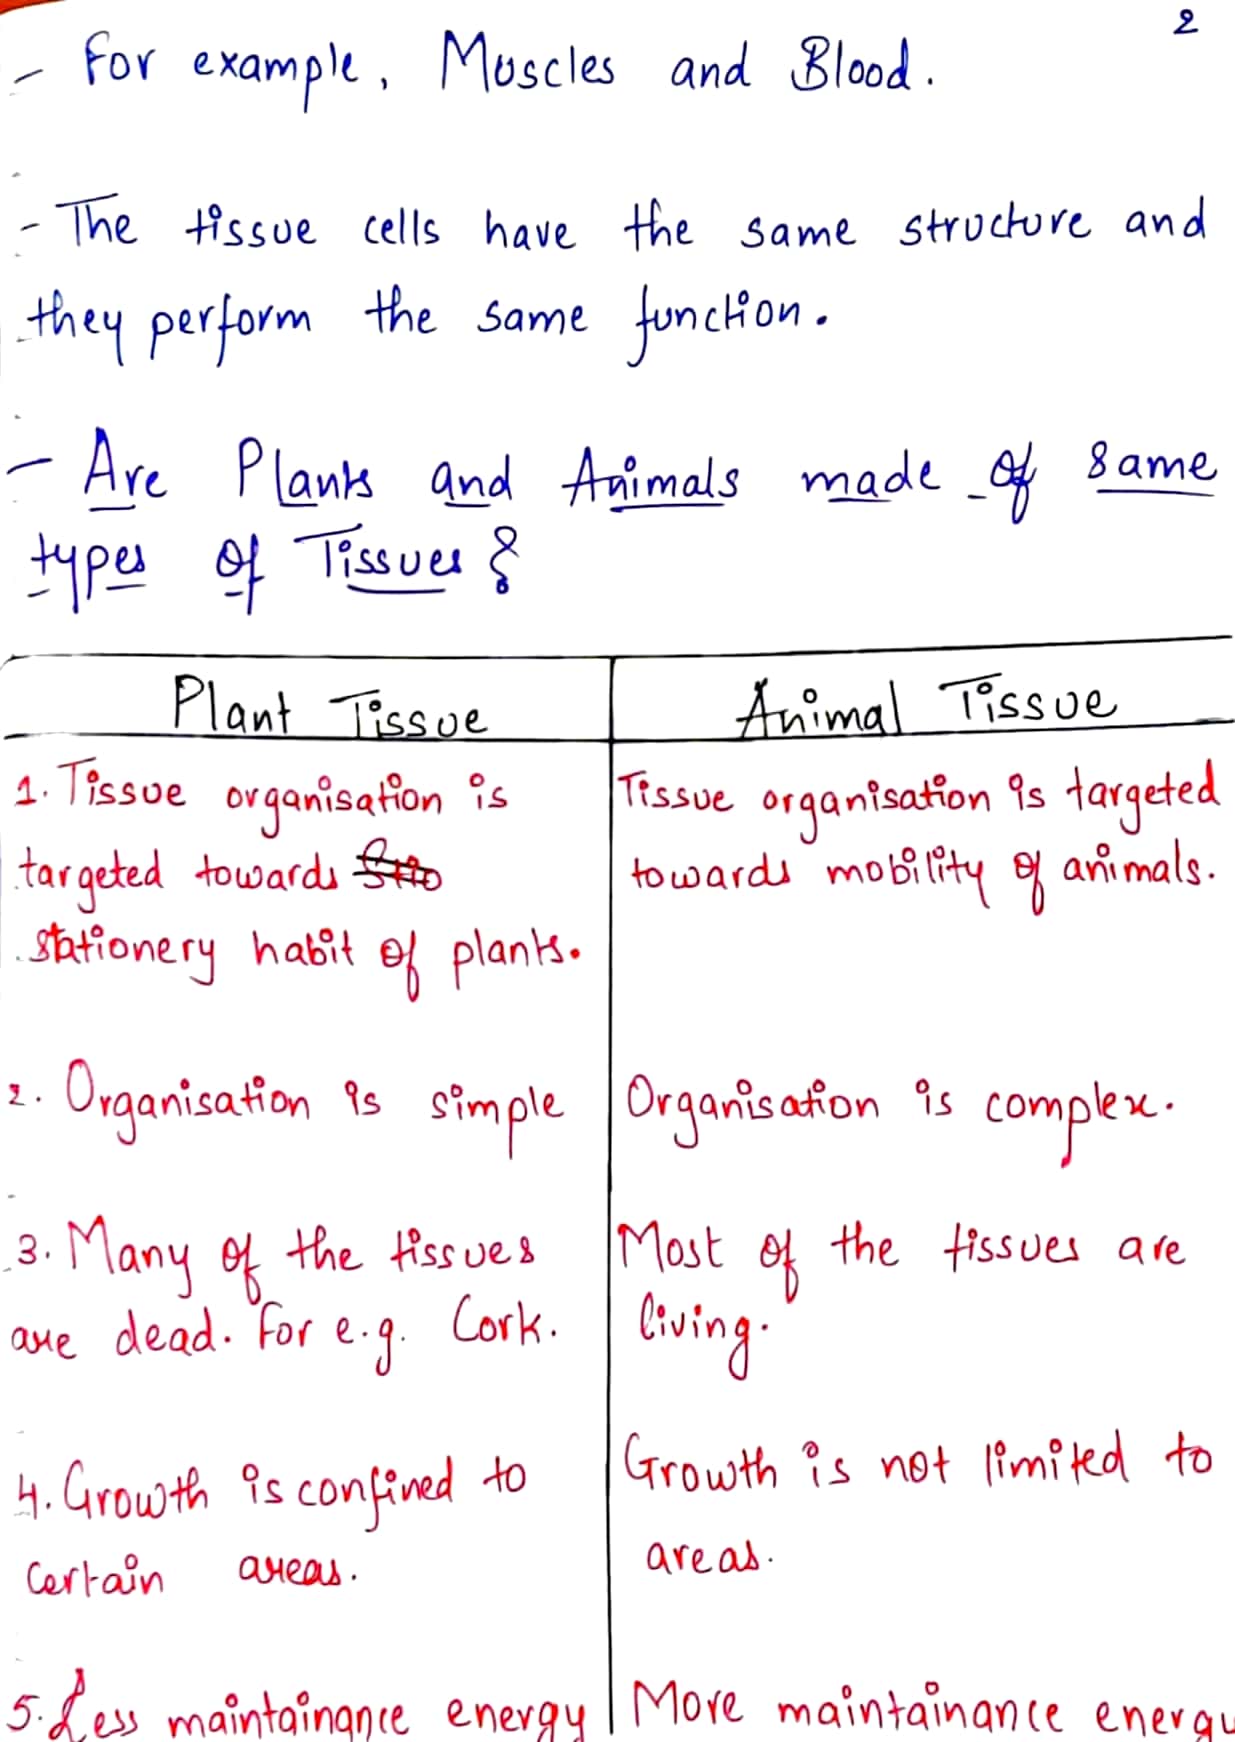 2
- For example, Muscles and Blood.
- The tissue cells have the same structure and
they perform the same function.
- Are Plants and Animals made of same
types of Tissues?
Plant Tissue
Animal Tissue
1. Tissue organisation is
targeted towards
stationery habit of plants.
Tissue organisation is targeted
towards mobility of animals.
2. Organisation is simple
Organisation is complex.
3. Many of the tissues
are dead. For e.g. Cork.
Most of the tissues are
living.
4. Growth is confined to
certain areas.
Growth is not limited to
areas.
5. Less maintaingnce energy
More maintainance energy